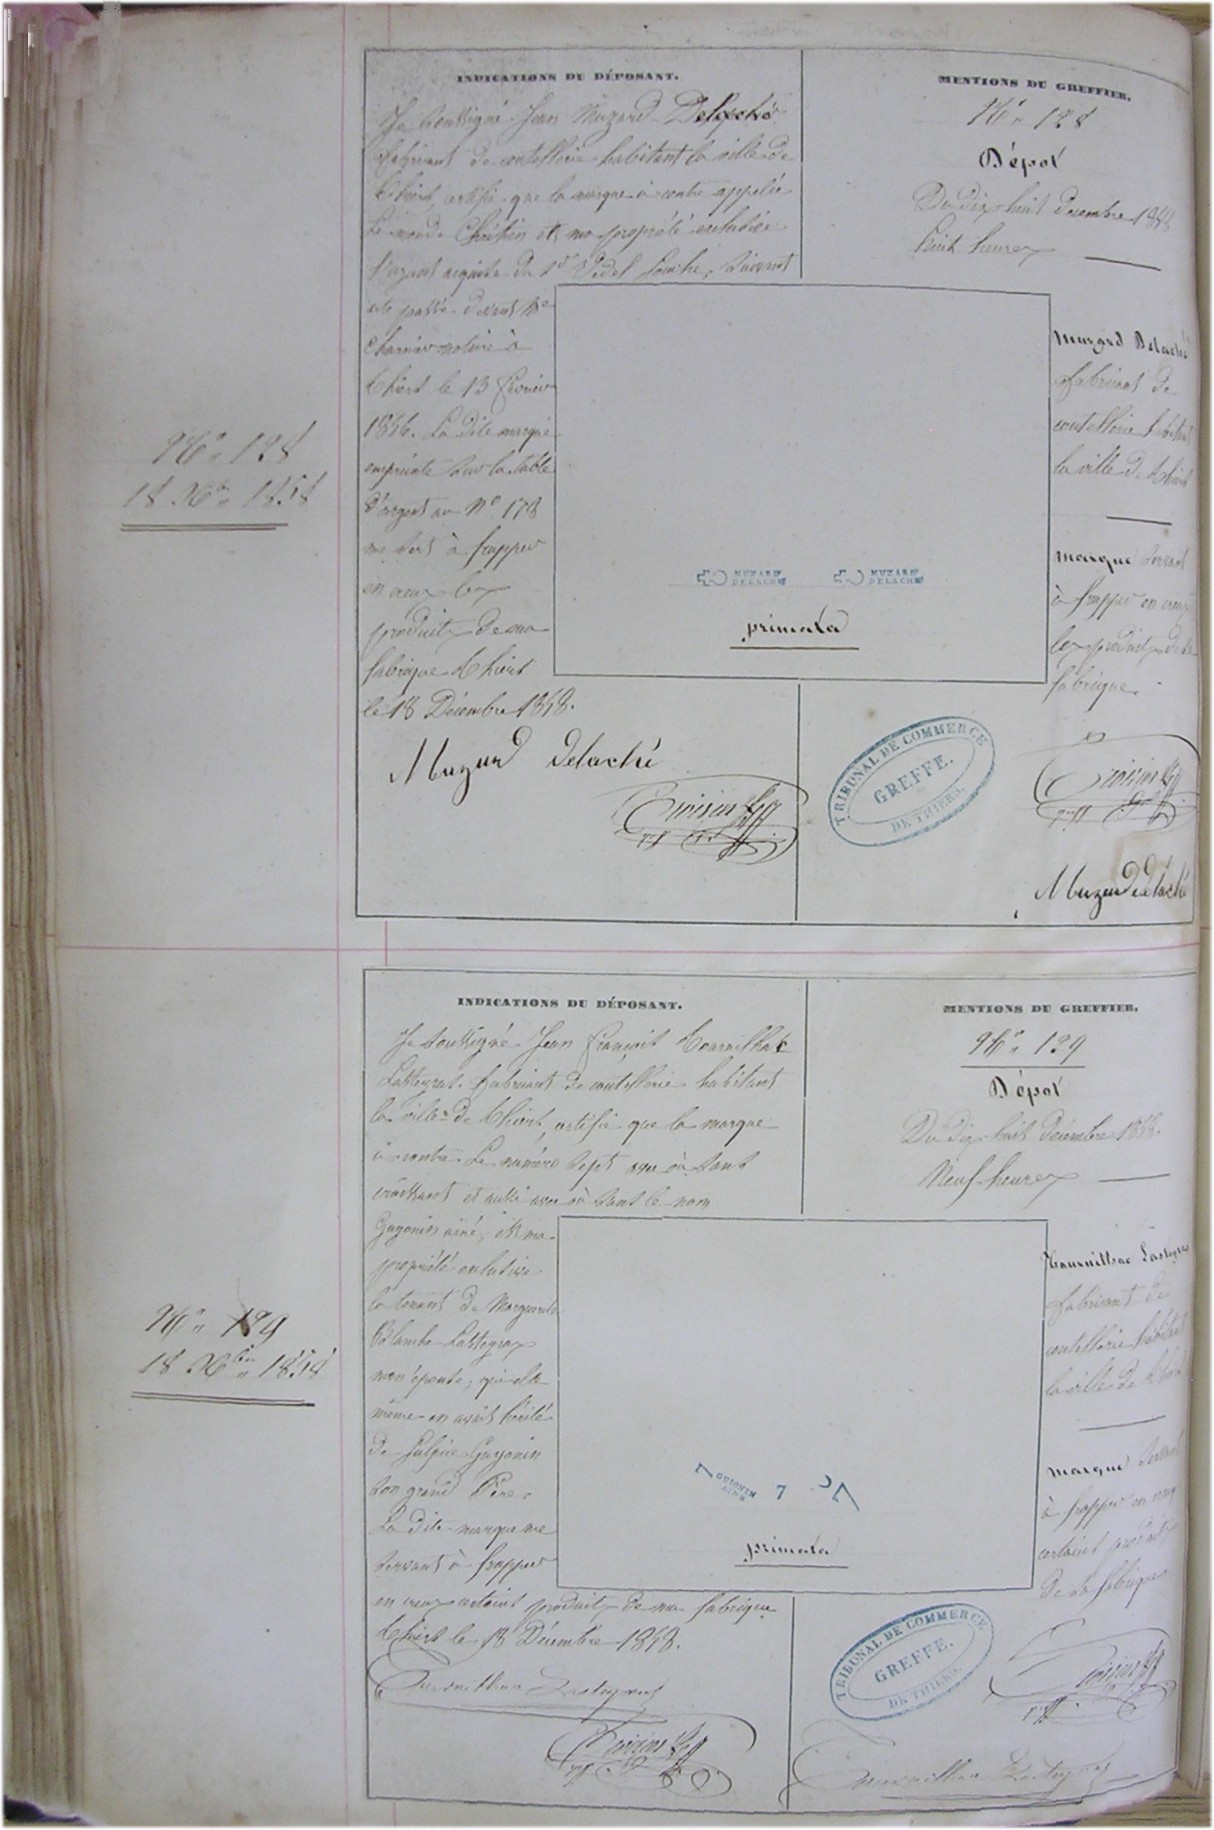 INDICATIONS DU DÉPOSANT.
Je soussigné Jean Muzard Delaché
fabricant de coutellerie habitant la ville de
Thiers, certifie que la marque à contre appelée
Le monde Chrétien est ma propriété exclusive
l'ayant acquise du Sr suivant
acte passé devant Me
notaire à
Thiers le 13 février
1856. La dite marque
empreinte sur la table
d'argent au No 178
me sert à frapper
en creux les
produits de ma
fabrique Thiers
le 18 Décembre 1858.
Muzard Delaché
MENTIONS DU GREFFIER.
No 128
Dépot
Du dix huit décembre 1858
huit heures
Muzard Delaché
fabricant de
coutellerie habitant
la ville de Thiers
marque servant
à frapper en creux
les produits de sa
fabrique.
MUZARD
DELACHÉ
MUZARD
DELACHÉ
primata
TRIBUNAL DE COMMERCE
GREFFE.
DE THIERS.
Muzard Delaché
No 128
18 Xbre 1858
INDICATIONS DU DÉPOSANT.
Je soussigné Jean François Tournilhac
Lasteyras fabricant de coutellerie habitant
la ville de Thiers, certifie que la marque
à contre Le numéro sept avec où sans
croissant et aussi avec où sans le nom
Guyonin ainé, est ma
propriété exclusive
la tenant de Marguerite
Colombe Lasteyras
mon épouse, qui elle
même en avait hérité
de Sulpice Guyonin
son grand Père.
La dite marque me
servant à frapper
en creux certains produits de ma fabrique
Thiers le 18 Décembre 1858.
Tournilhac Lasteyras
MENTIONS DU GREFFIER.
No 129
Dépot
Du dix huit décembre 1858.
Neuf heures
Tournilhac Lasteyras
fabricant de
coutellerie habitant
la ville de Thiers
marque servant
à frapper en creux
certains produits
de sa fabrique
7 GUIONIN
AINÉ
7
7
primata
TRIBUNAL DE COMMERCE
GREFFE.
DE THIERS.
Tournilhac Lasteyras
No 129
18 Xbre 1858